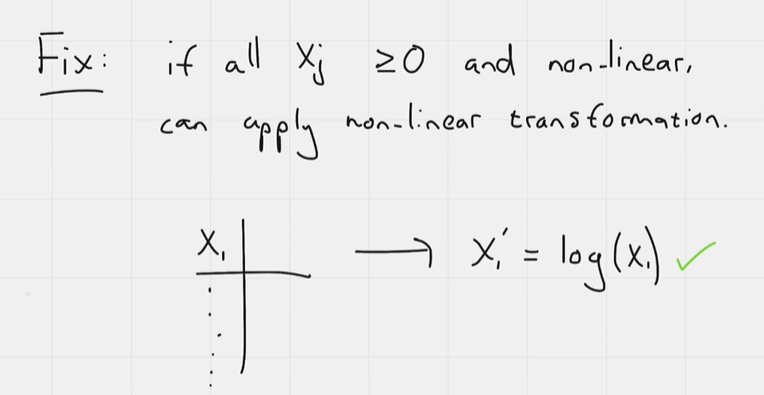 Fix: if all Xj ≥0 and non-linear,
can apply non-linear transformation.
X₁ → X₁' = log(X₁) ✓